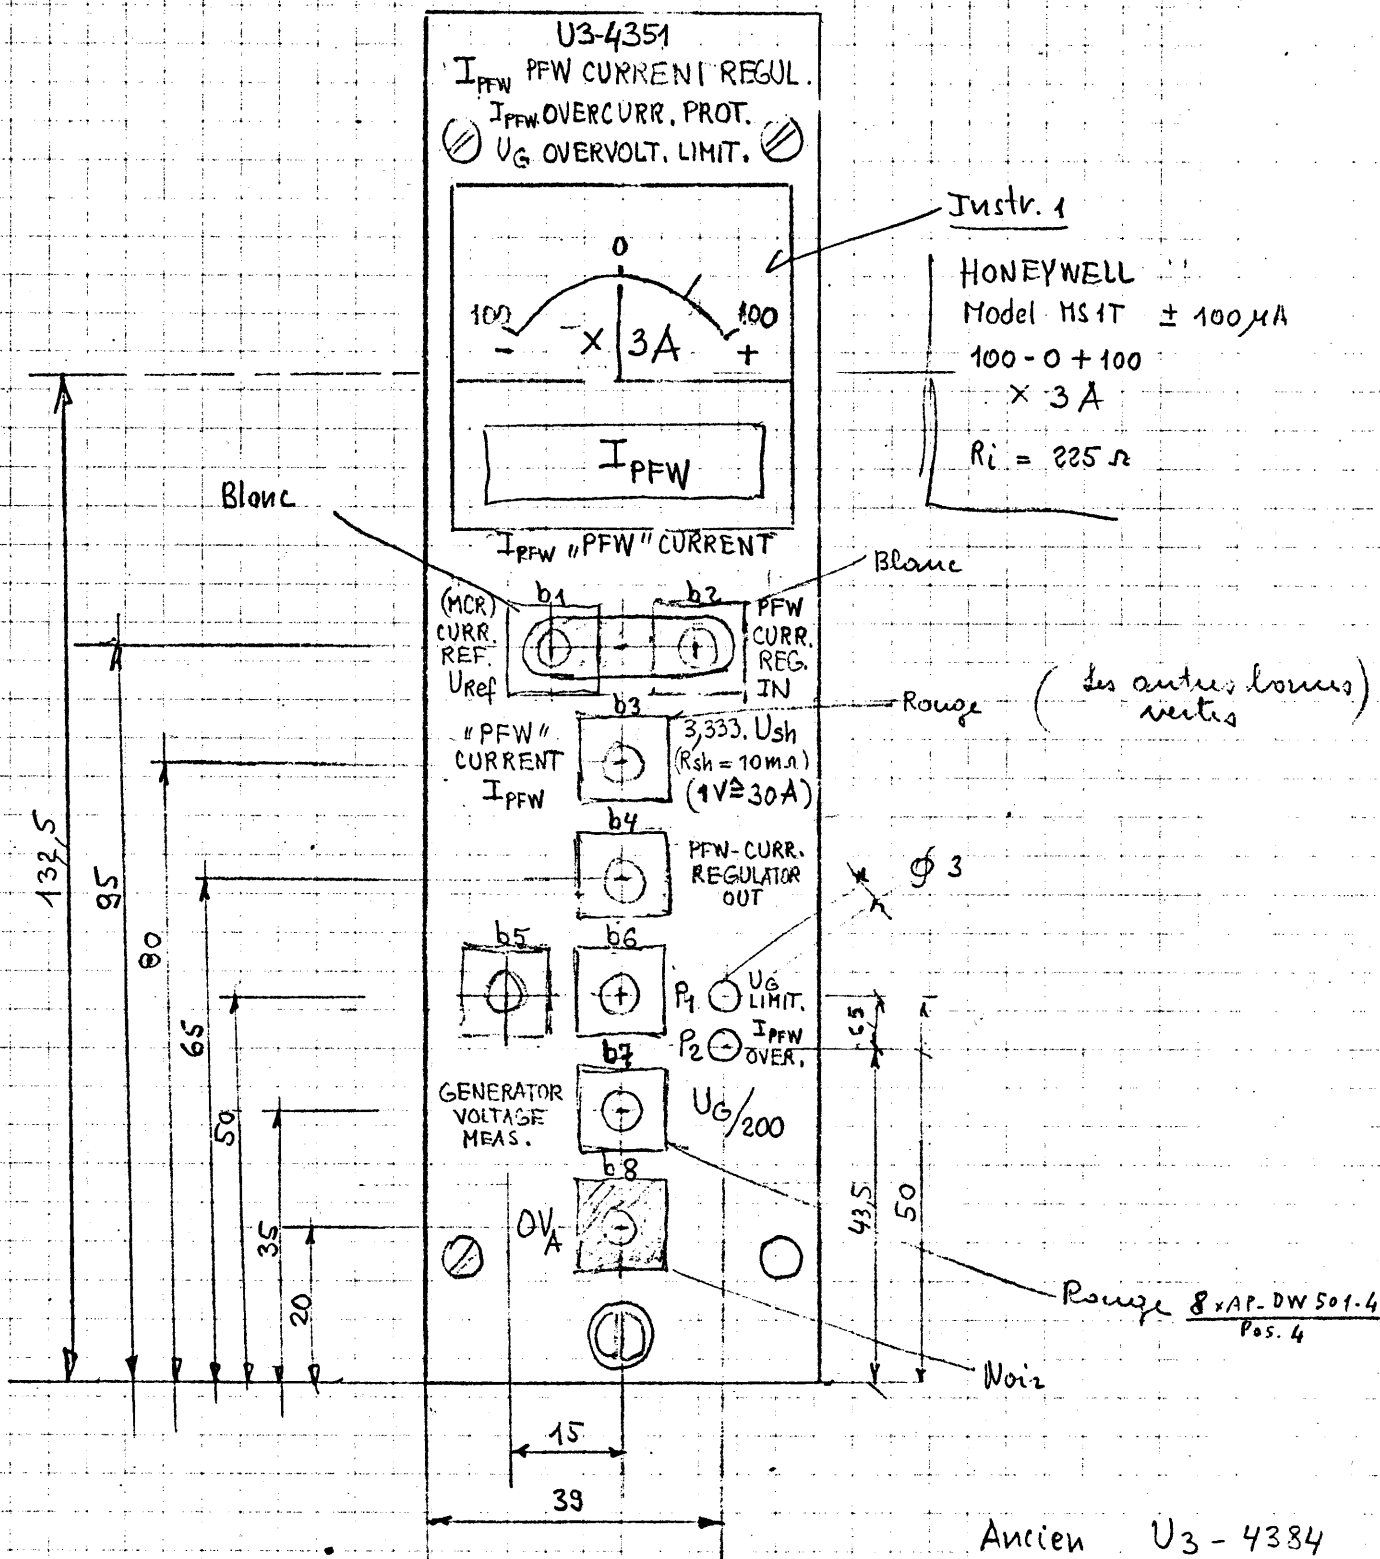 U3-4351
IPFW PFW CURRENT REGUL.
IPFW OVERCURR. PROT.
UG OVERVOLT. LIMIT.
0
100
100
-
× 3A
+
IPFW
IPFW "PFW" CURRENT
Instr. 1
HONEYWELL
Model MS1T ± 100µA
100 - 0 + 100
× 3 A
Ri = 225 Ω
Blanc
Blanc
b1
b2
(MCR)
CURR.
REF.
URef
PFW
CURR.
REG.
IN
b3
Rouge
(Les autres bornes)
vertes
"PFW"
CURRENT
IPFW
3,333. Ush
(Rsh = 10mΩ)
(1V≙30A)
b4
PFW-CURR.
REGULATOR
OUT
φ 3
b5
b6
P1
UG
LIMIT.
P2
IPFW
OVER.
b7
GENERATOR
VOLTAGE
MEAS.
UG/200
b8
0VA
Rouge 8×AP-DW501-4
Pos. 4
Noir
132,5
95
80
65
50
35
20
6,5
43,5
50
15
39
Ancien U3-4384